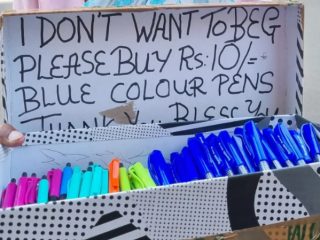 I DON'T WANT TO BEG
PLEASE BUY Rs: 10/=
BLUE COLOUR PENS
THANK YOU BLESS YOU